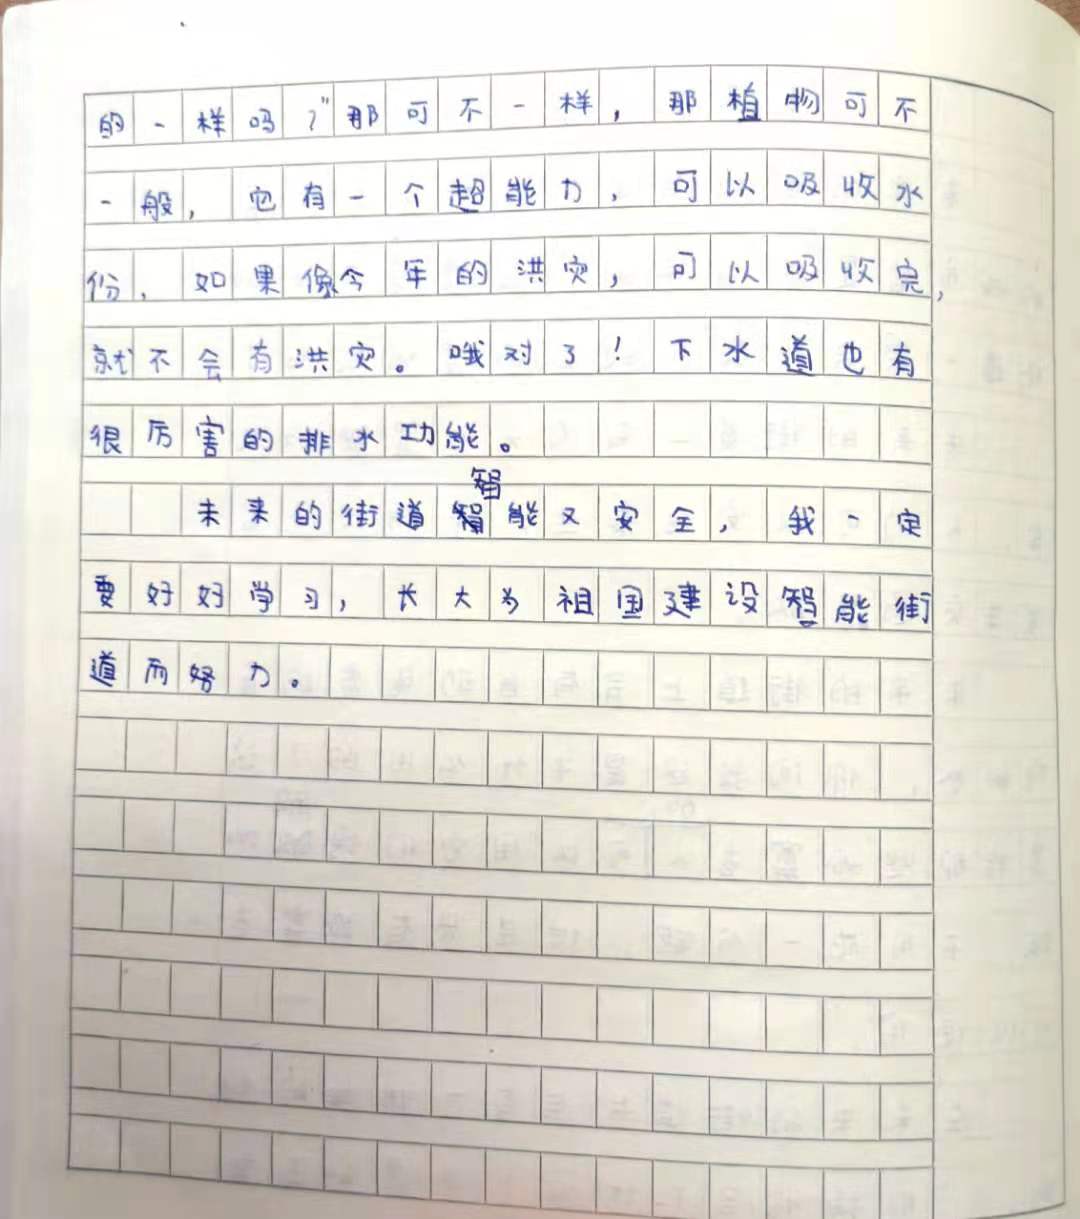 的一样吗？”那可不一样，那植物可不
一般，它有一个超能力，可以吸收水
份，如果像今年的洪灾，可以吸收完，
就不会有洪灾。哦对了！下水道也有
很厉害的排水功能。
智
未来的街道智能又安全，我一定
要好好学习，长大为祖国建设智能街
道而努力。